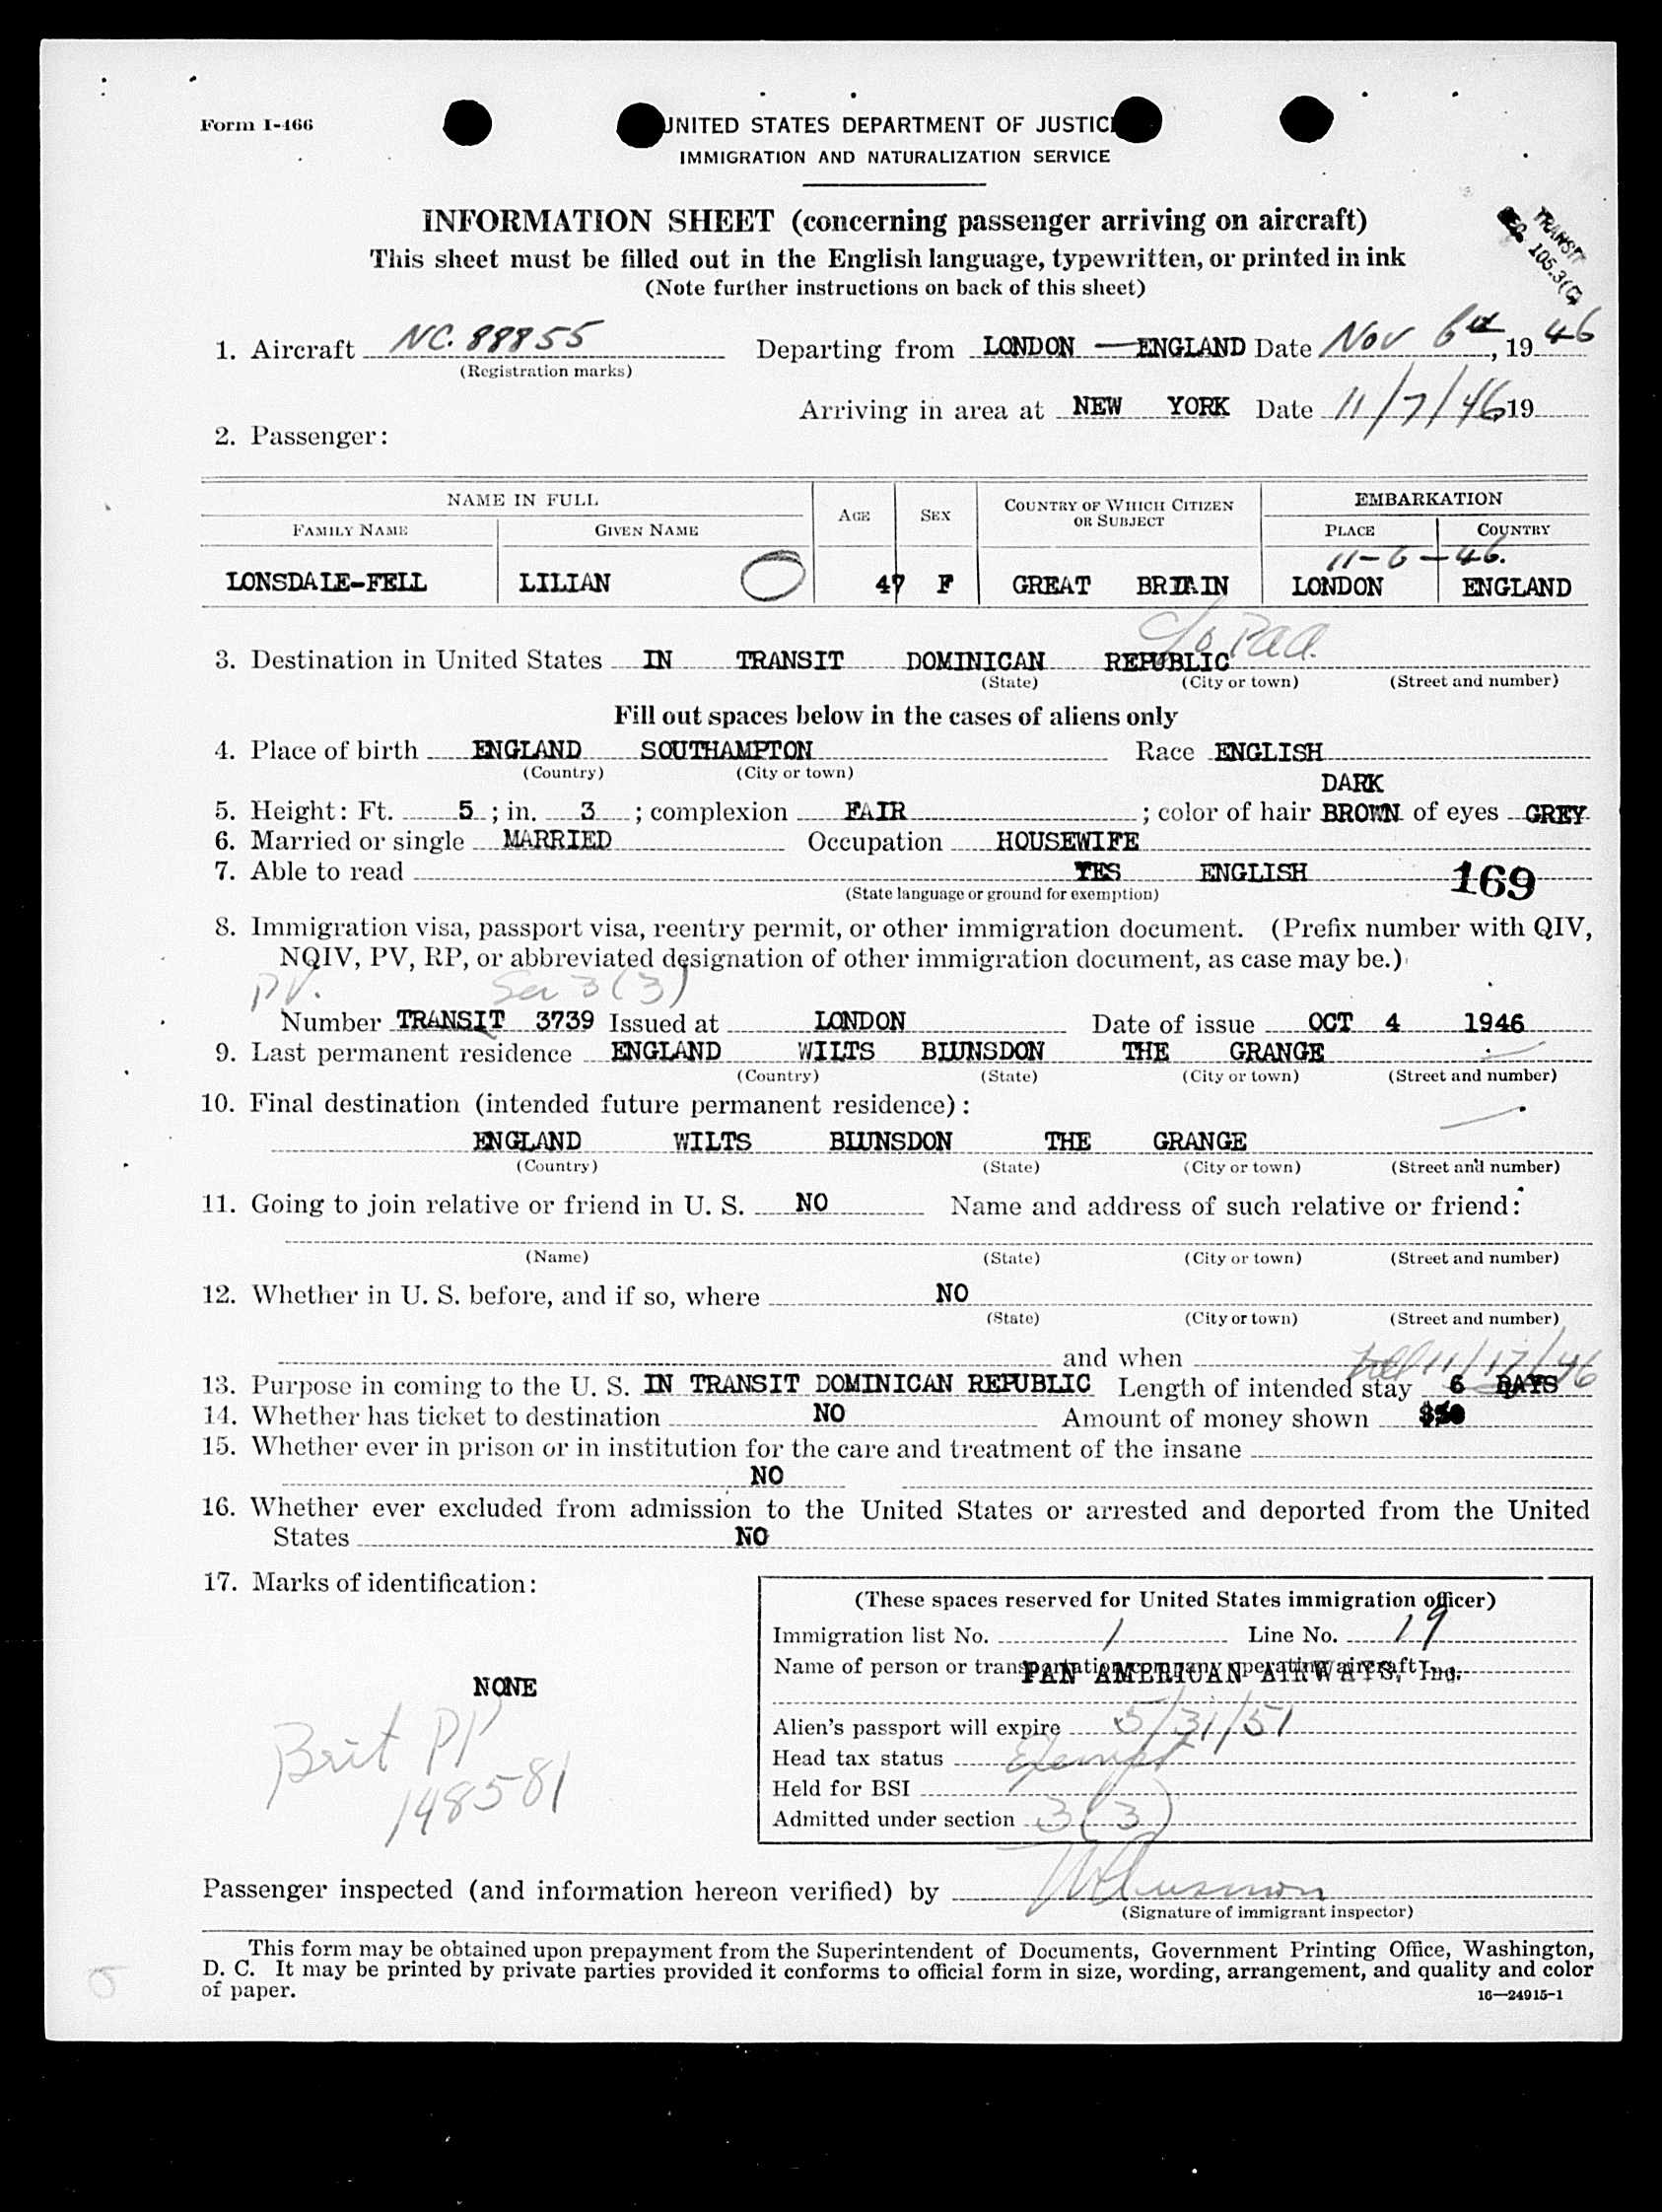 Form I-466
UNITED STATES DEPARTMENT OF JUSTICE
IMMIGRATION AND NATURALIZATION SERVICE
INFORMATION SHEET (concerning passenger arriving on aircraft)
This sheet must be filled out in the English language, typewritten, or printed in ink
(Note further instructions on back of this sheet)
TRANSIT
SEC. 105.3(C)
1. Aircraft NC. 88855 Departing from LONDON — ENGLAND Date Nov 6th, 1946
(Registration marks)
Arriving in area at NEW YORK Date 11/7/46 19
2. Passenger:
NAME IN FULL AGE SEX COUNTRY OF WHICH CITIZEN OR SUBJECT EMBARKATION
FAMILY NAME GIVEN NAME PLACE COUNTRY
11-6-46.
LONSDALE-FELL LILIAN 47 F GREAT BRITAIN LONDON ENGLAND
c/o Paa.
3. Destination in United States IN TRANSIT DOMINICAN REPUBLIC
(State) (City or town) (Street and number)
Fill out spaces below in the cases of aliens only
4. Place of birth ENGLAND SOUTHAMPTON Race ENGLISH
(Country) (City or town)
DARK
5. Height: Ft. 5; in. 3; complexion FAIR; color of hair BROWN of eyes GREY
6. Married or single MARRIED Occupation HOUSEWIFE
7. Able to read YES ENGLISH 169
(State language or ground for exemption)
8. Immigration visa, passport visa, reentry permit, or other immigration document. (Prefix number with QIV,
NQIV, PV, RP, or abbreviated designation of other immigration document, as case may be.)
PV. Sec 3(3)
Number TRANSIT 3739 Issued at LONDON Date of issue OCT 4 1946
9. Last permanent residence ENGLAND WILTS BLUNSDON THE GRANGE
(Country) (State) (City or town) (Street and number)
10. Final destination (intended future permanent residence):
ENGLAND WILTS BLUNSDON THE GRANGE
(Country) (State) (City or town) (Street and number)
11. Going to join relative or friend in U. S. NO Name and address of such relative or friend:
(Name) (State) (City or town) (Street and number)
12. Whether in U. S. before, and if so, where NO
(State) (City or town) (Street and number)
and when 11/17/46
13. Purpose in coming to the U. S. IN TRANSIT DOMINICAN REPUBLIC Length of intended stay 6 DAYS
14. Whether has ticket to destination NO Amount of money shown $50
15. Whether ever in prison or in institution for the care and treatment of the insane
NO
16. Whether ever excluded from admission to the United States or arrested and deported from the United
States NO
17. Marks of identification:
NONE
Brit PP
148581
(These spaces reserved for United States immigration officer)
Immigration list No. 1 Line No. 19
Name of person or transportation company operating aircraft
PAN AMERICAN AIRWAYS, Inc.
Alien's passport will expire 5/31/51
Head tax status Exempt
Held for BSI
Admitted under section 3(3)
Passenger inspected (and information hereon verified) by
(Signature of immigrant inspector)
This form may be obtained upon prepayment from the Superintendent of Documents, Government Printing Office, Washington,
D. C. It may be printed by private parties provided it conforms to official form in size, wording, arrangement, and quality and color
of paper.
16—24915-1